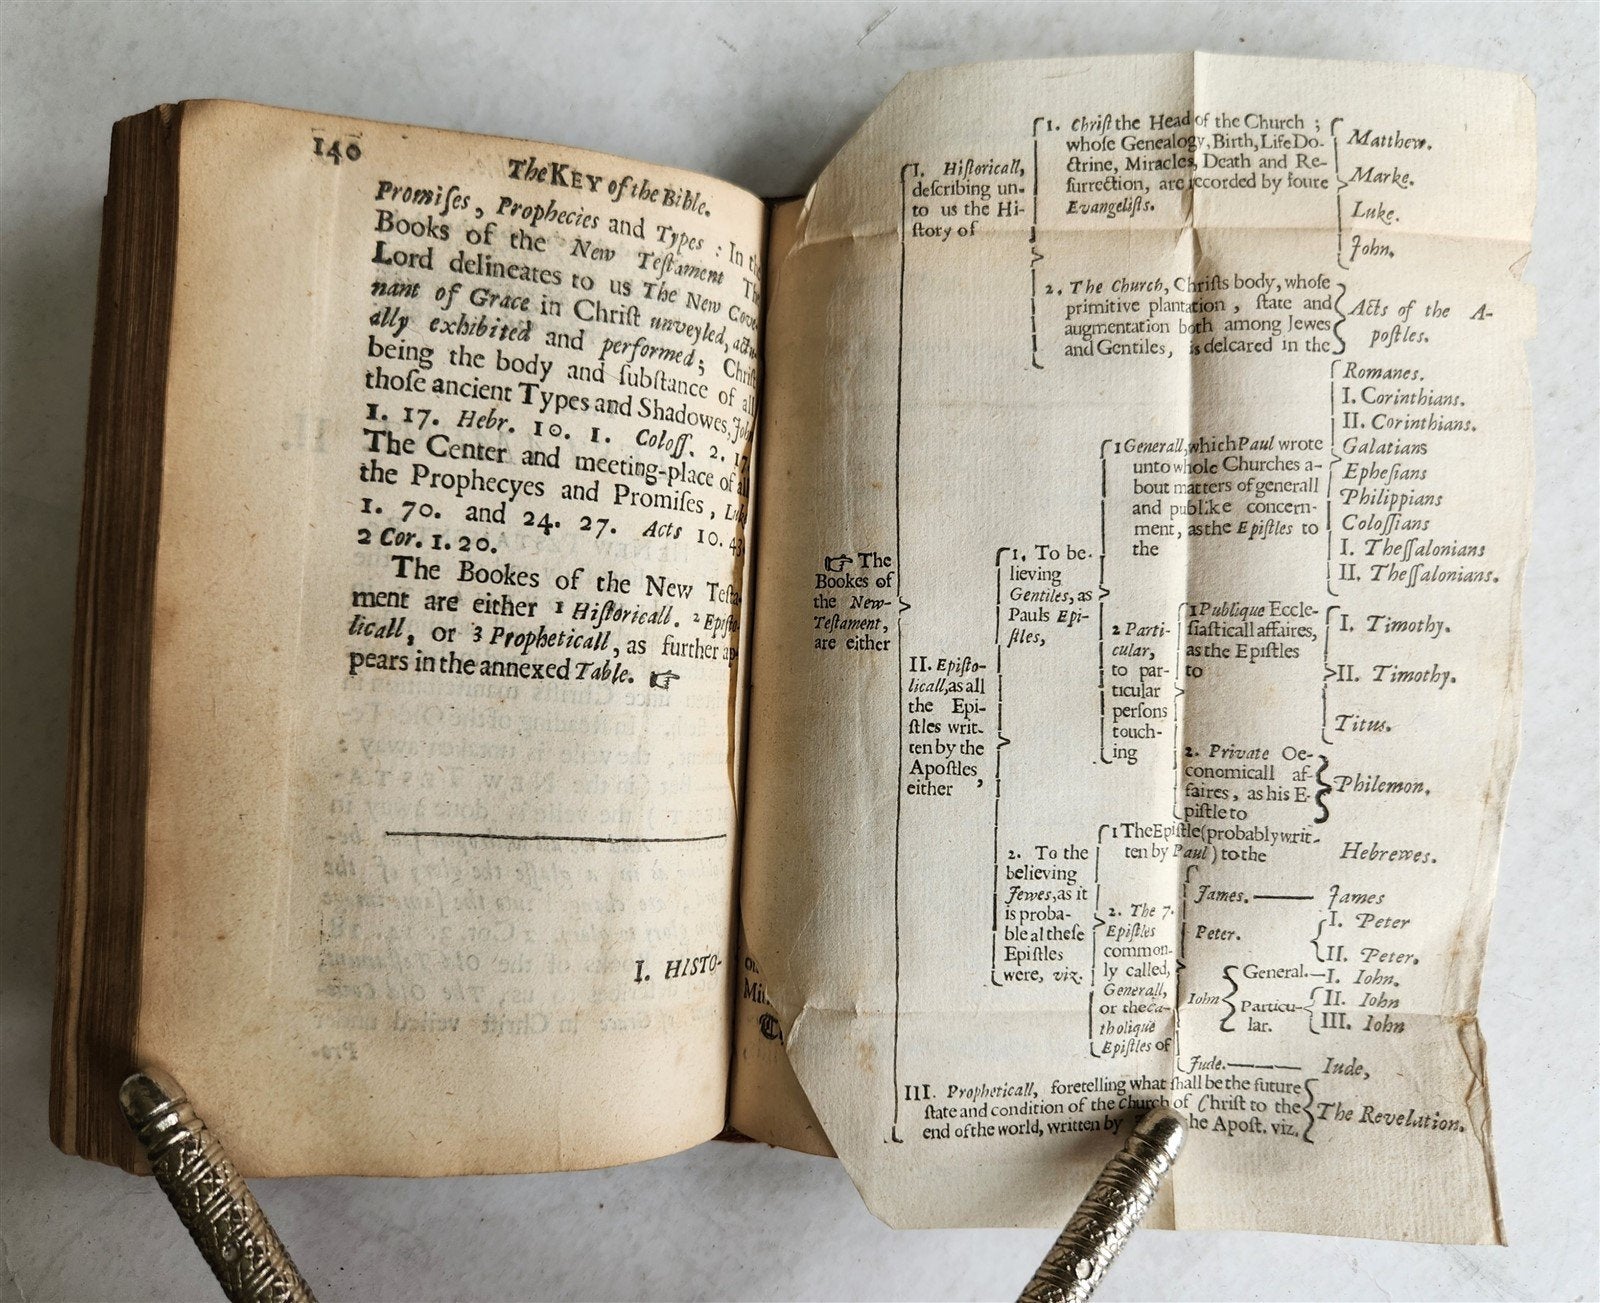 140
The KEY of the Bible.
Promiſes, Prophecies and Types : In
Books of the New Teſtament
Lord delineates to us The New Cove-
nant of Grace in Chriſt unveyled,
ally exhibited and performed; Chriſt
being the body and ſubſtance of all
thoſe ancient Types and Shadowes,
1. 17. Hebr. 10. 1. Coloſſ. 2. 17.
The Center and meeting-place of
the Prophecyes and Promiſes,
1. 70. and 24. 27. Acts 10. 43.
2 Cor. 1. 20.
The Bookes of the New Teſta-
ment are either 1 Hiſtoricall. 2 Epiſto-
licall, or 3 Propheticall, as further ap-
pears in the annexed Table. ☞
I. HISTO-
☞ The
Bookes of
the New-
Teſtament,
are either
I. Hiſtoricall,
deſcribing un-
to us the Hi-
ſtory of
1. Chriſt the Head of the Church ;
whoſe Genealogy, Birth, Life Do-
ctrine, Miracles, Death and Re-
ſurrection, are recorded by foure
Evangeliſts.
Matthew.
Marke.
Luke.
John.
2. The Church, Chriſts body, whoſe
primitive plantation , ſtate and
augmentation both among Jewes
and Gentiles, is delcared in the
Acts of the A-
poſtles.
II. Epiſto-
licall, as all
the Epi-
ſtles writ-
ten by the
Apoſtles,
either
1. To be-
lieving
Gentiles, as
Pauls Epi-
ſtles,
1 Generall, which Paul wrote
unto whole Churches a-
bout matters of generall
and publike concern-
ment, as the Epiſtles to
the
Romanes.
I. Corinthians.
II. Corinthians.
Galatians
Epheſians
Philippians
Coloſſians
I. Theſſalonians
II. Theſſalonians.
2 Parti-
cular,
to par-
ticular
perſons
touch-
ing
1 Publique Eccle-
ſiaſticall affaires,
as the Epiſtles
to
I. Timothy.
II. Timothy.
Titus.
2. Private Oe-
conomicall af-
faires, as his E-
piſtle to
Philemon.
2. To the
believing
Jewes, as it
is proba-
ble al theſe
Epiſtles
were, viz.
1 The Epiſtle (probably writ-
ten by Paul) to the
Hebrewes.
2. The 7.
Epiſtles
common-
ly called,
Generall,
or the Ca-
tholique
Epiſtles of
James.
James
Peter.
I. Peter
II. Peter.
Iohn
General.
I. Iohn.
Particu-
lar.
II. Iohn
III. Iohn
Jude.
Iude,
III. Propheticall, foretelling what ſhall be the future
ſtate and condition of the Church of Chriſt to the
end of the world, written by the Apoſt. viz.
The Revelation.